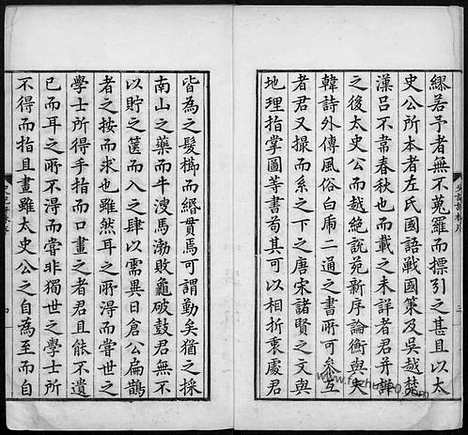 繆若予者無不蒐羅而摽引之甚且以太
史公所本者左氏國語戰國策及吳越楚
漢呂不韋春秋也而載之未詳者君并譁
之後太史公而越絶說苑新序論衡與夫
韓詩外傳風俗白乕二通之書所可參互
者君又撮而系之下之唐宋諸賢之文與
地理指掌圖等書茍其可以相折衷慶君
皆為之髮櫛而縎貫焉可謂勤矣猶之採
南山之藥而牛溲馬渤敗龜破鼓君無不
以貯之篋而入之肆以需異日倉公扁鵲
者之按而求也雖然耳之所淂而嘗世之
學士所得手而口畫之者君且能不遺
已而耳之所不淂而嘗非獨世之學士所
不得而指且畫雖太史公之自為至而自